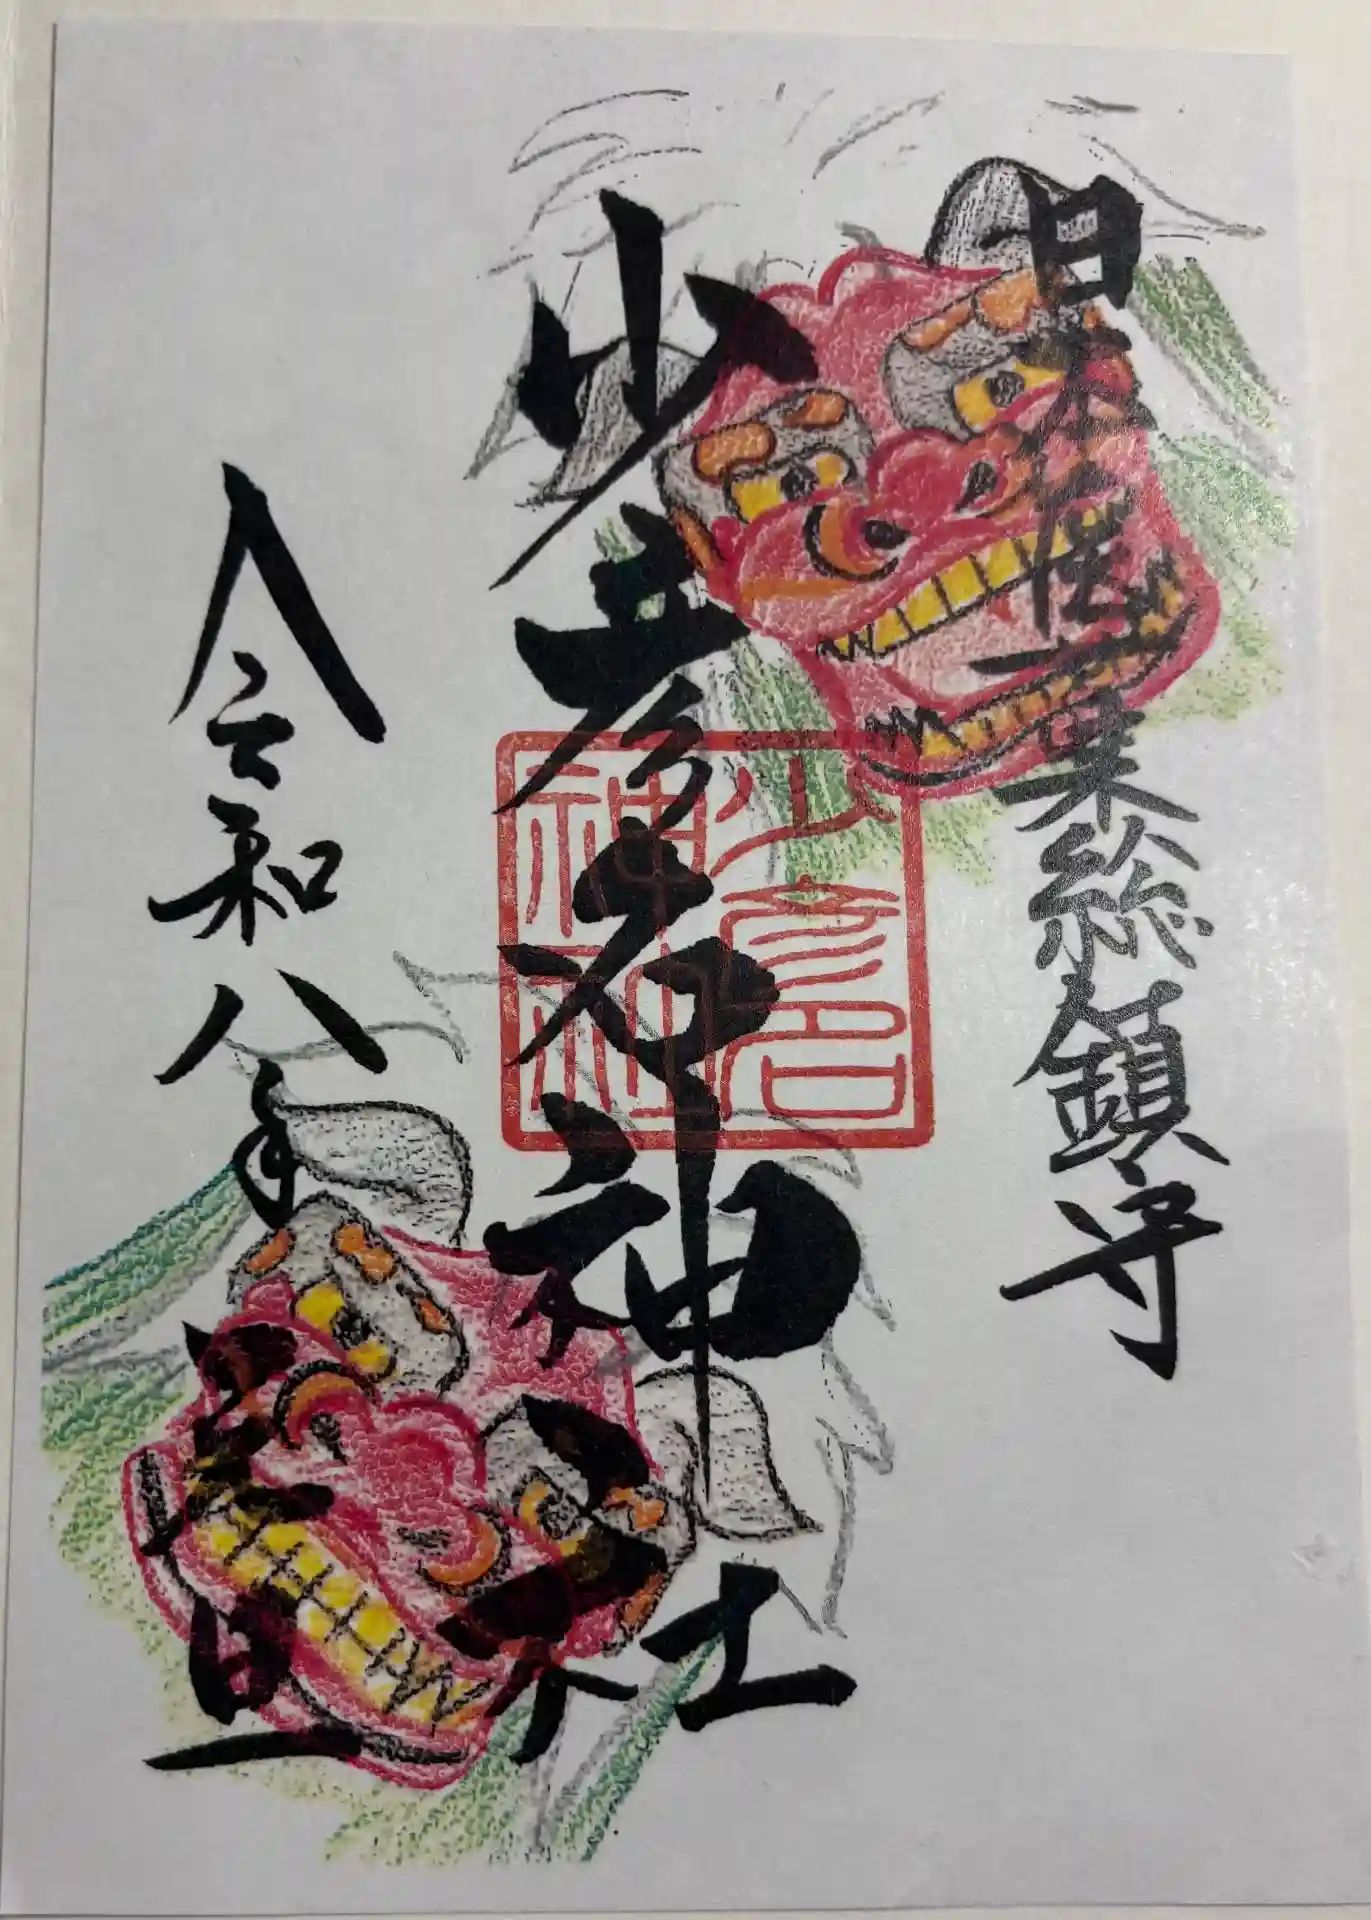 日本医薬総鎮守
少彦名神社
少彦名
神社
令和八年
元旦